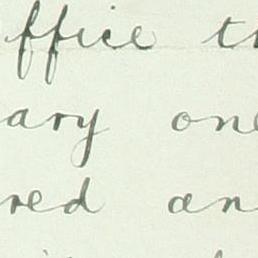 office th
ary one
red an